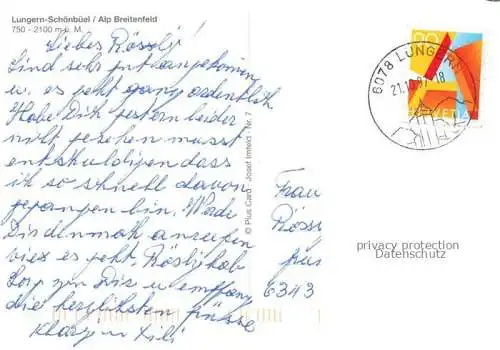 Lungern-Schönbüel / Alp Breitenfeld
750 - 2100 m ü. M.
Liebes Rössly!
Sind sehr gut angekomen
u. es geht ganz ordentlich
Habe Dich gestern leider
nicht gesehen musst
entschuldigen dass
ich so schnell davon
gegangen bin. Werde
Dir denmoth anrufen
wies es geht. Röslj hab
Sorg zu Dir u empfang
die herzlichsten Grüsse
u
© Plus Card - Josef Imfeld - Nr. 7
90
6078 LUNGERN
21.10.97-18
HELVETIA
Frau
Röss
6343
privacy protection
Datenschutz